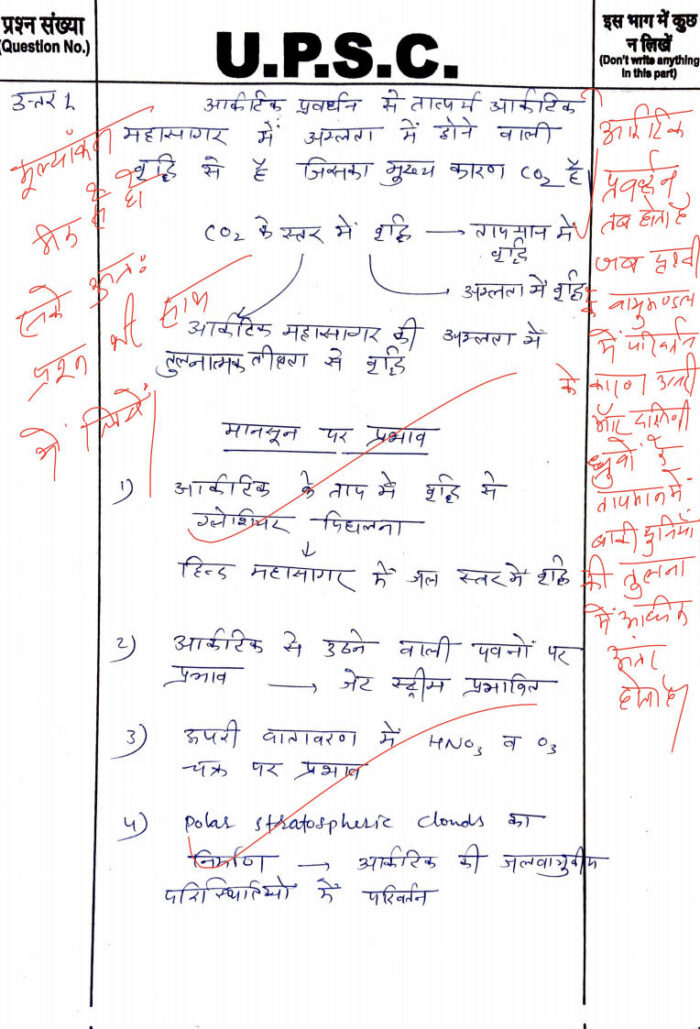 प्रश्न संख्या
(Question No.)
U.P.S.C.
इस भाग में कुछ
न लिखें
(Don't write anything
in this part)
उत्तर 1.
आर्कटिक प्रवर्धन से तात्पर्य आर्कटिक
महासागर में अम्लता में होने वाली
वृद्धि से है जिसका मुख्य कारण CO₂ है
CO₂ के स्तर में वृद्धि → तापमान में
वृद्धि
→ अम्लता में वृद्धि
आर्कटिक महासागर की अम्लता में
तुलनात्मक तीव्रता से वृद्धि
मानसून पर प्रभाव
1) आर्कटिक के ताप में वृद्धि से
ग्लेशियर पिघलना
↓
हिन्द महासागर में जल स्तर में वृद्धि
2) आर्कटिक से उठने वाली पवनों पर
प्रभाव → जेट स्ट्रीम प्रभावित
3) ऊपरी वातावरण में HNO₃ व O₃
चक्र पर प्रभाव
4) Polar stratospheric clouds का
निर्माण → आर्कटिक की जलवायुवीय
परिस्थितियों में परिवर्तन
मूल्यांकन
प्रश्न भी साथ
में लिखें
आर्कटिक
प्रवर्धन
तब होता है
जब पृथ्वी
के वायुमण्डल
में परिवर्तन
के कारण उत्तरी
और दक्षिणी
ध्रुवों के
तापमान में
बाकी दुनिया
की तुलना
में अधिक
अंतर
होता है